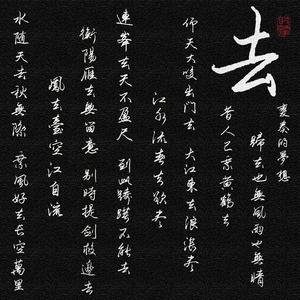 去
的夢想
歸去也無風雨也無晴
昔人已乘黃鶴去
仰天大笑出門去 大江東去浪淘盡
江水流春去欲盡
連峯去天不盈尺 到此躊躇不能去
衡陽雁去無留意 別時提劍救邊去
鳳去臺空江自流
水隨天去秋無際 乘風好去長空萬里